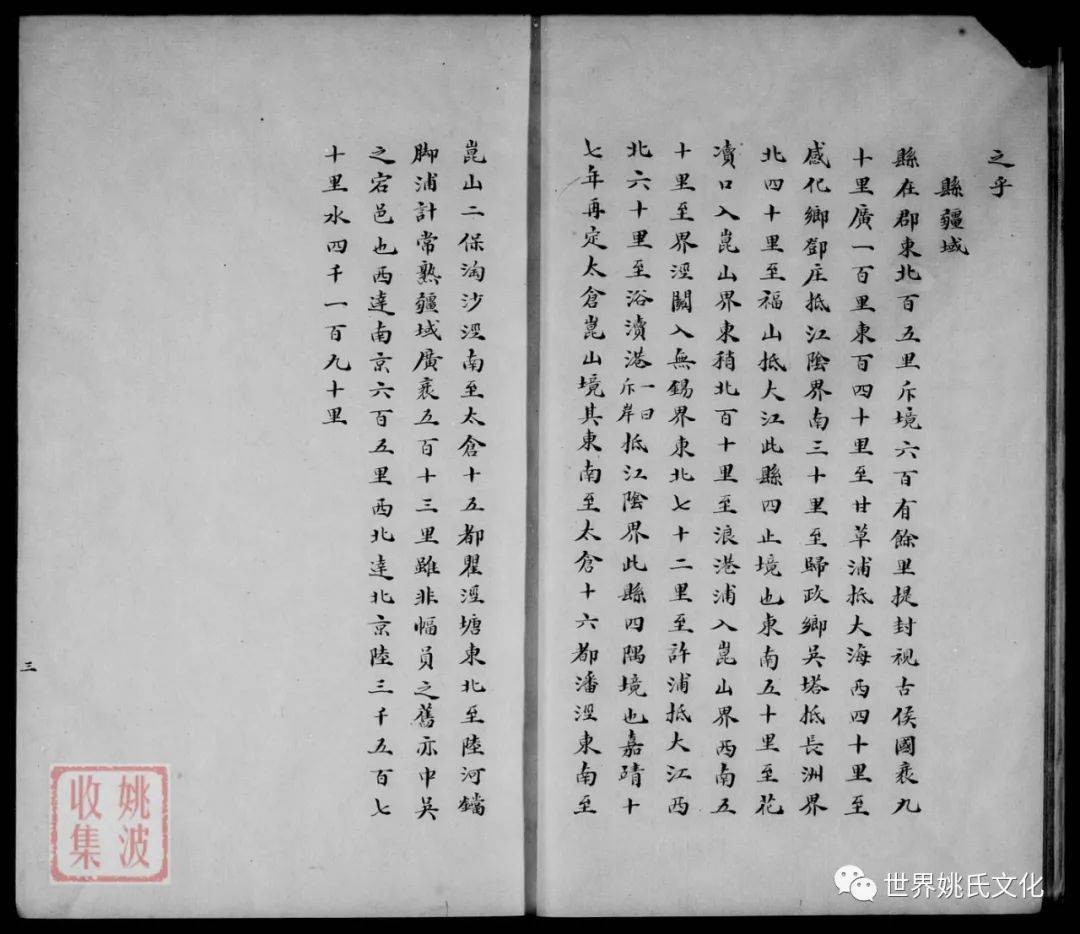 之乎
縣疆域
縣在郡東北百五里斥境六百有餘里提封視古侯國袤九
十里廣一百里東百四十里至甘草浦抵大海西四十里至
感化鄉鄧庄抵江陰界南三十里至歸政鄉吳塔抵長洲界
北四十里至福山抵大江此縣四止境也東南五十里至花
瀆口入崑山界東稍北百十里至浪港浦入崑山界西南五
十里至界涇闞入無錫界東北七十二里至許浦抵大江西
北六十里至浴瀆港一曰斥岸抵江陰界此縣四隅境也嘉靖十
七年再定太倉崑山境其東南至太倉十六都潘涇東南至
崑山二保淘沙涇南至太倉十五都瞿涇塘東北至陸河鐺
脚浦計常熟疆域廣袤五百十三里雖非幅員之舊亦中吳
之宕邑也西達南京六百五里西北達北京陸三千五百七
十里水四千一百九十里
三
姚波
收集
世界姚氏文化